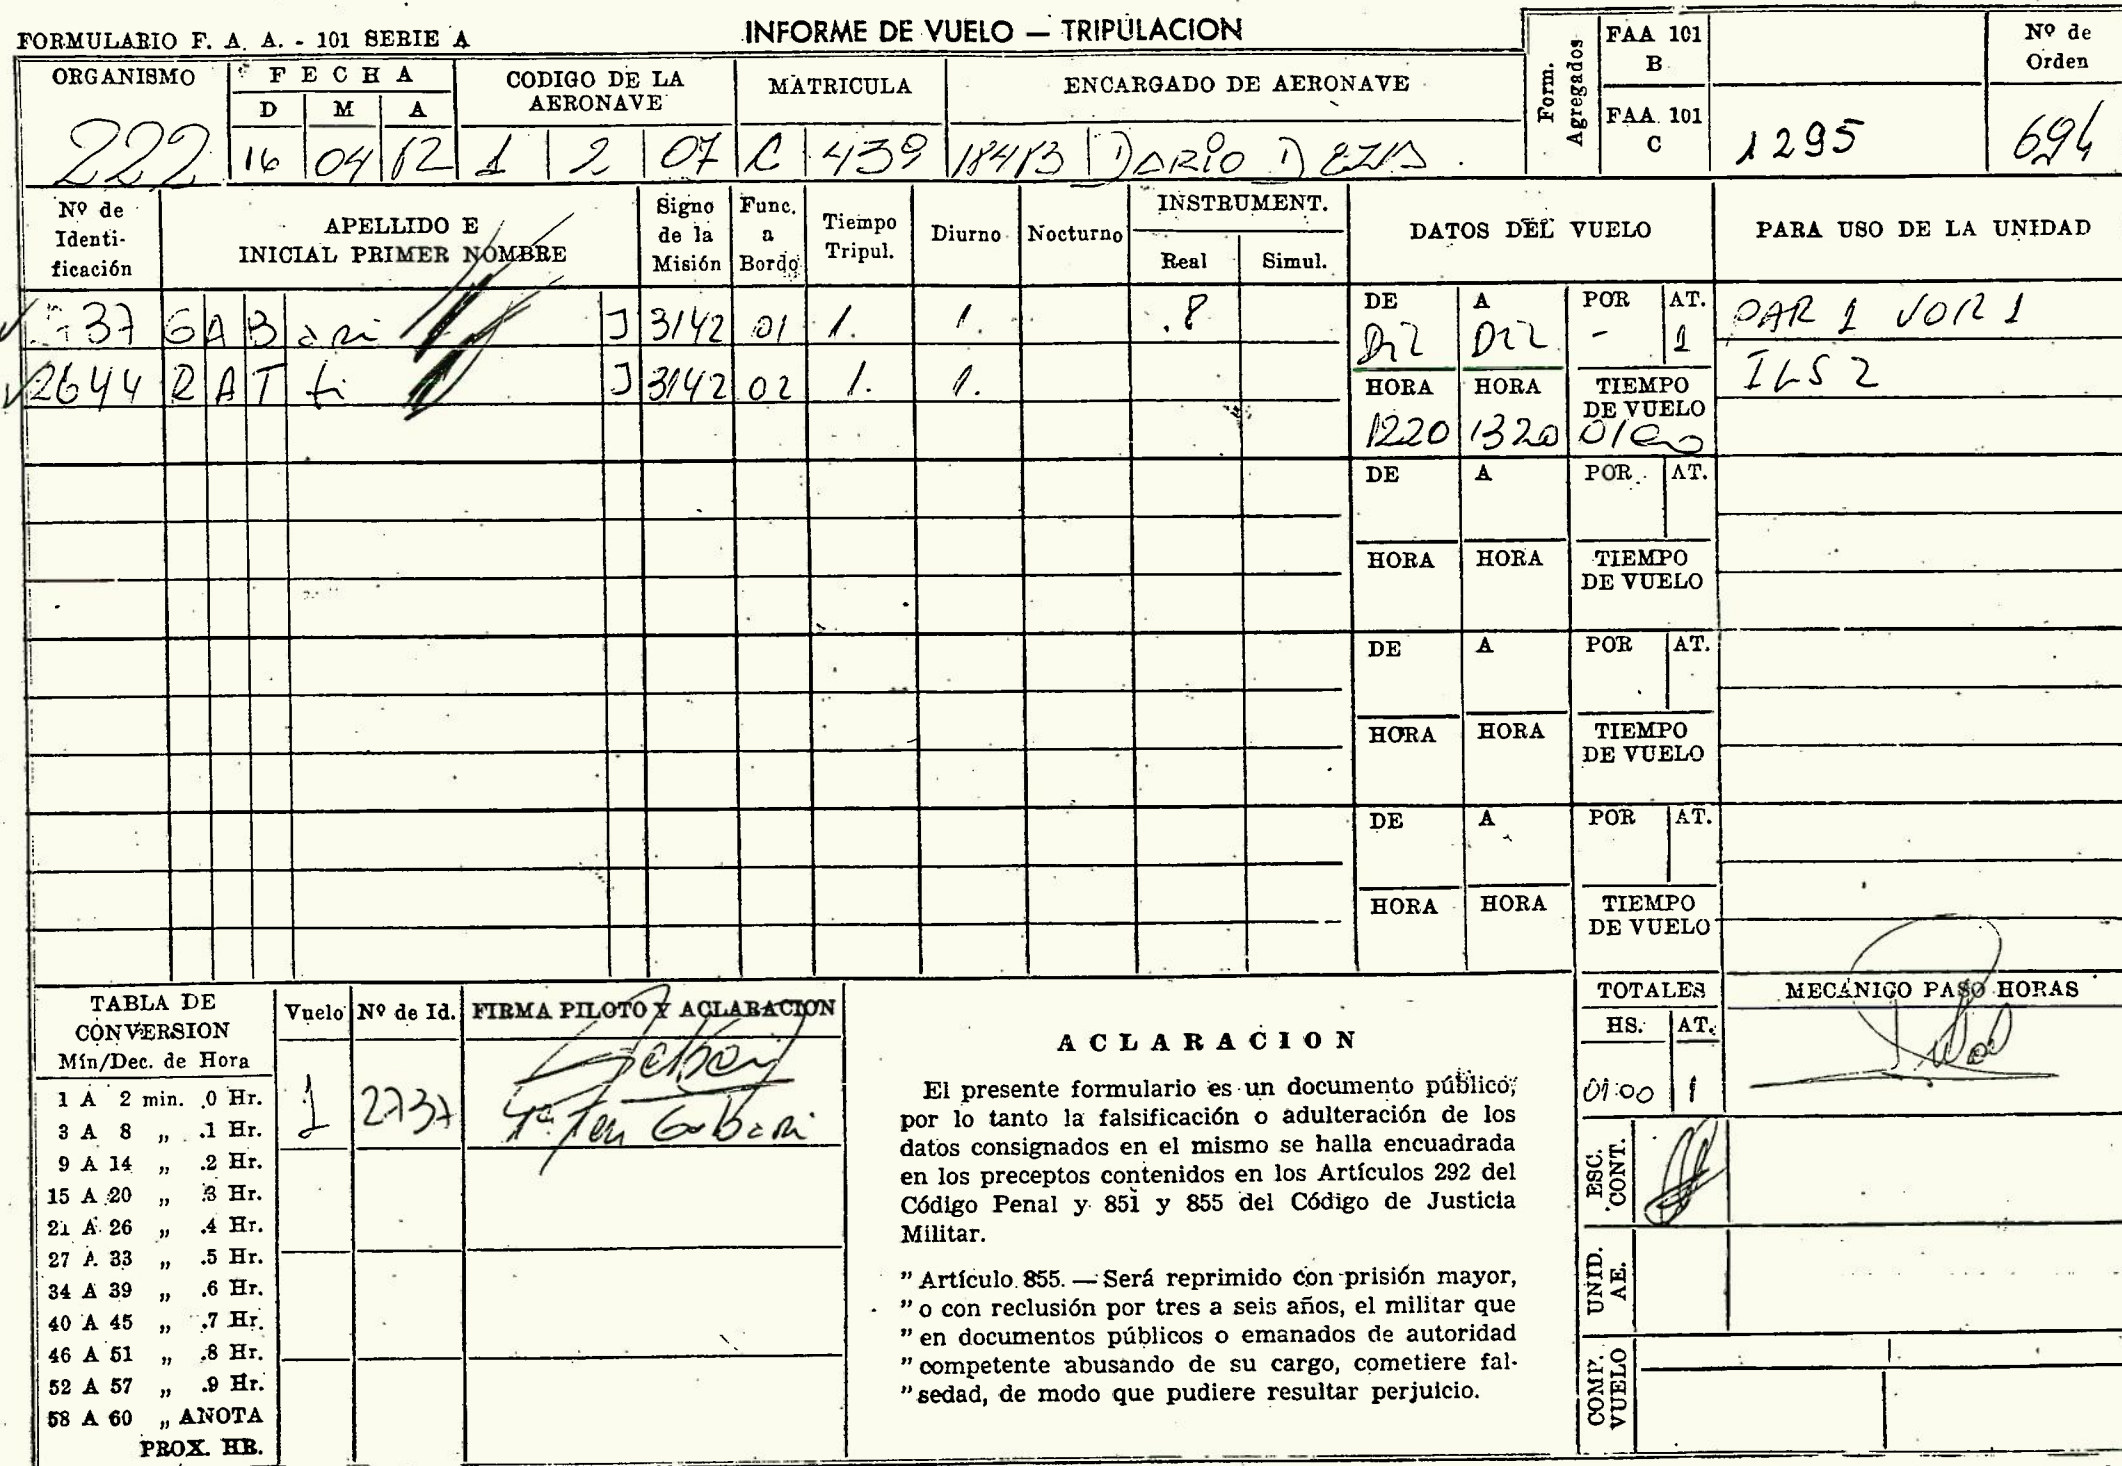 FORMULARIO F. A. A. - 101 SERIE A
INFORME DE VUELO — TRIPULACION
Form. Agregados
FAA 101 B
FAA 101 C
1295
Nº de Orden
694
ORGANISMO
222
FECHA
D M A
16 04 82
CODIGO DE LA AERONAVE
1 2 07
MATRICULA
C 439
ENCARGADO DE AERONAVE
18483 DARIO
Nº de Identi-ficación
APELLIDO E INICIAL PRIMER NOMBRE
Signo de la Misión
Func. a Bordo
Tiempo Tripul.
Diurno
Nocturno
INSTRUMENT.
Real Simul.
DATOS DEL VUELO
PARA USO DE LA UNIDAD
737 GABari J 3142 01 1. 1. .8
2644 RATti J 3142 02 1. 1.
DE A POR AT.
- 1
HORA HORA TIEMPO DE VUELO
1220 1320 0100
PAR 1 VOR 1
ILS 2
DE A POR AT.
HORA HORA TIEMPO DE VUELO
DE A POR AT.
HORA HORA TIEMPO DE VUELO
DE A POR AT.
HORA HORA TIEMPO DE VUELO
TABLA DE CONVERSION
Mín/Dec. de Hora
1 A 2 min. .0 Hr.
3 A 8 „ .1 Hr.
9 A 14 „ .2 Hr.
15 A 20 „ .3 Hr.
21 A 26 „ .4 Hr.
27 A 33 „ .5 Hr.
34 A 39 „ .6 Hr.
40 A 45 „ .7 Hr.
46 A 51 „ .8 Hr.
52 A 57 „ .9 Hr.
58 A 60 „ ANOTA
PROX. HR.
Vuelo Nº de Id. FIRMA PILOTO Y ACLARACION
1 2737
1º Ten Gabari
ACLARACION
El presente formulario es un documento público,
por lo tanto la falsificación o adulteración de los
datos consignados en el mismo se halla encuadrada
en los preceptos contenidos en los Artículos 292 del
Código Penal y 851 y 855 del Código de Justicia
Militar.
" Artículo 855. — Será reprimido con prisión mayor,
" o con reclusión por tres a seis años, el militar que
" en documentos públicos o emanados de autoridad
" competente abusando de su cargo, cometiere fal-
" sedad, de modo que pudiere resultar perjuicio.
TOTALES
HS. AT.
01:00 1
MECÁNICO PASO HORAS
ESC. CONT.
UNID. AE.
COMP. VUELO